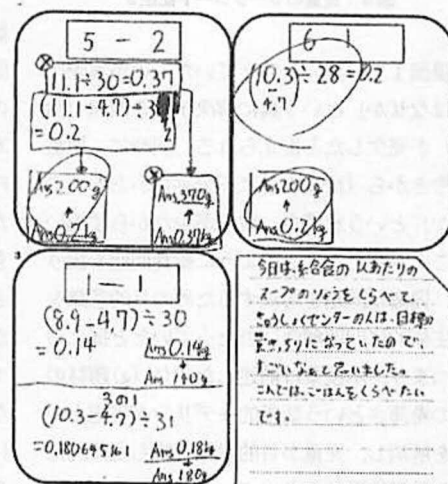 5 - 2
⊗
11.1÷30=0.37
(11.1-4.7)÷3
=0.2
Ans 200g
↑
Ans 0.21kg
⊗
Ans 370g
↑
Ans 0.37kg
6 - 1
(10.3-4.7)÷28=0.2
Ans 200g
↑
Ans 0.2kg
(8.9-4.7)÷30
=0.14
Ans 0.14kg
Ans 140g
3の1
(10.3-4.7)÷31
=0.18064516.1
Ans 0.18kg
Ans 180g
今日は、給食の1人あたりの
スープのりょうをくらべて
きゅうしょくセンターの人は、目標の
ぴったりになっていたので
すごいなぁと思いました。
こんどは、ごはんもくらべたい
です。